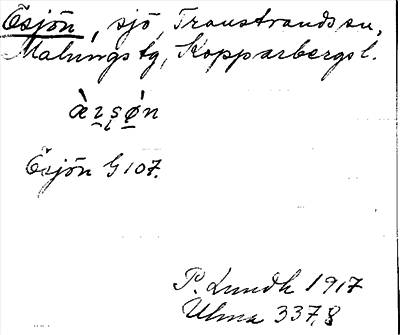 Ösjön, sjö, Transtrands sn,
Malungs tg, Kopparbergs l.
Ösjön G 107.
P. Lundh 1917
Ulma 337,8